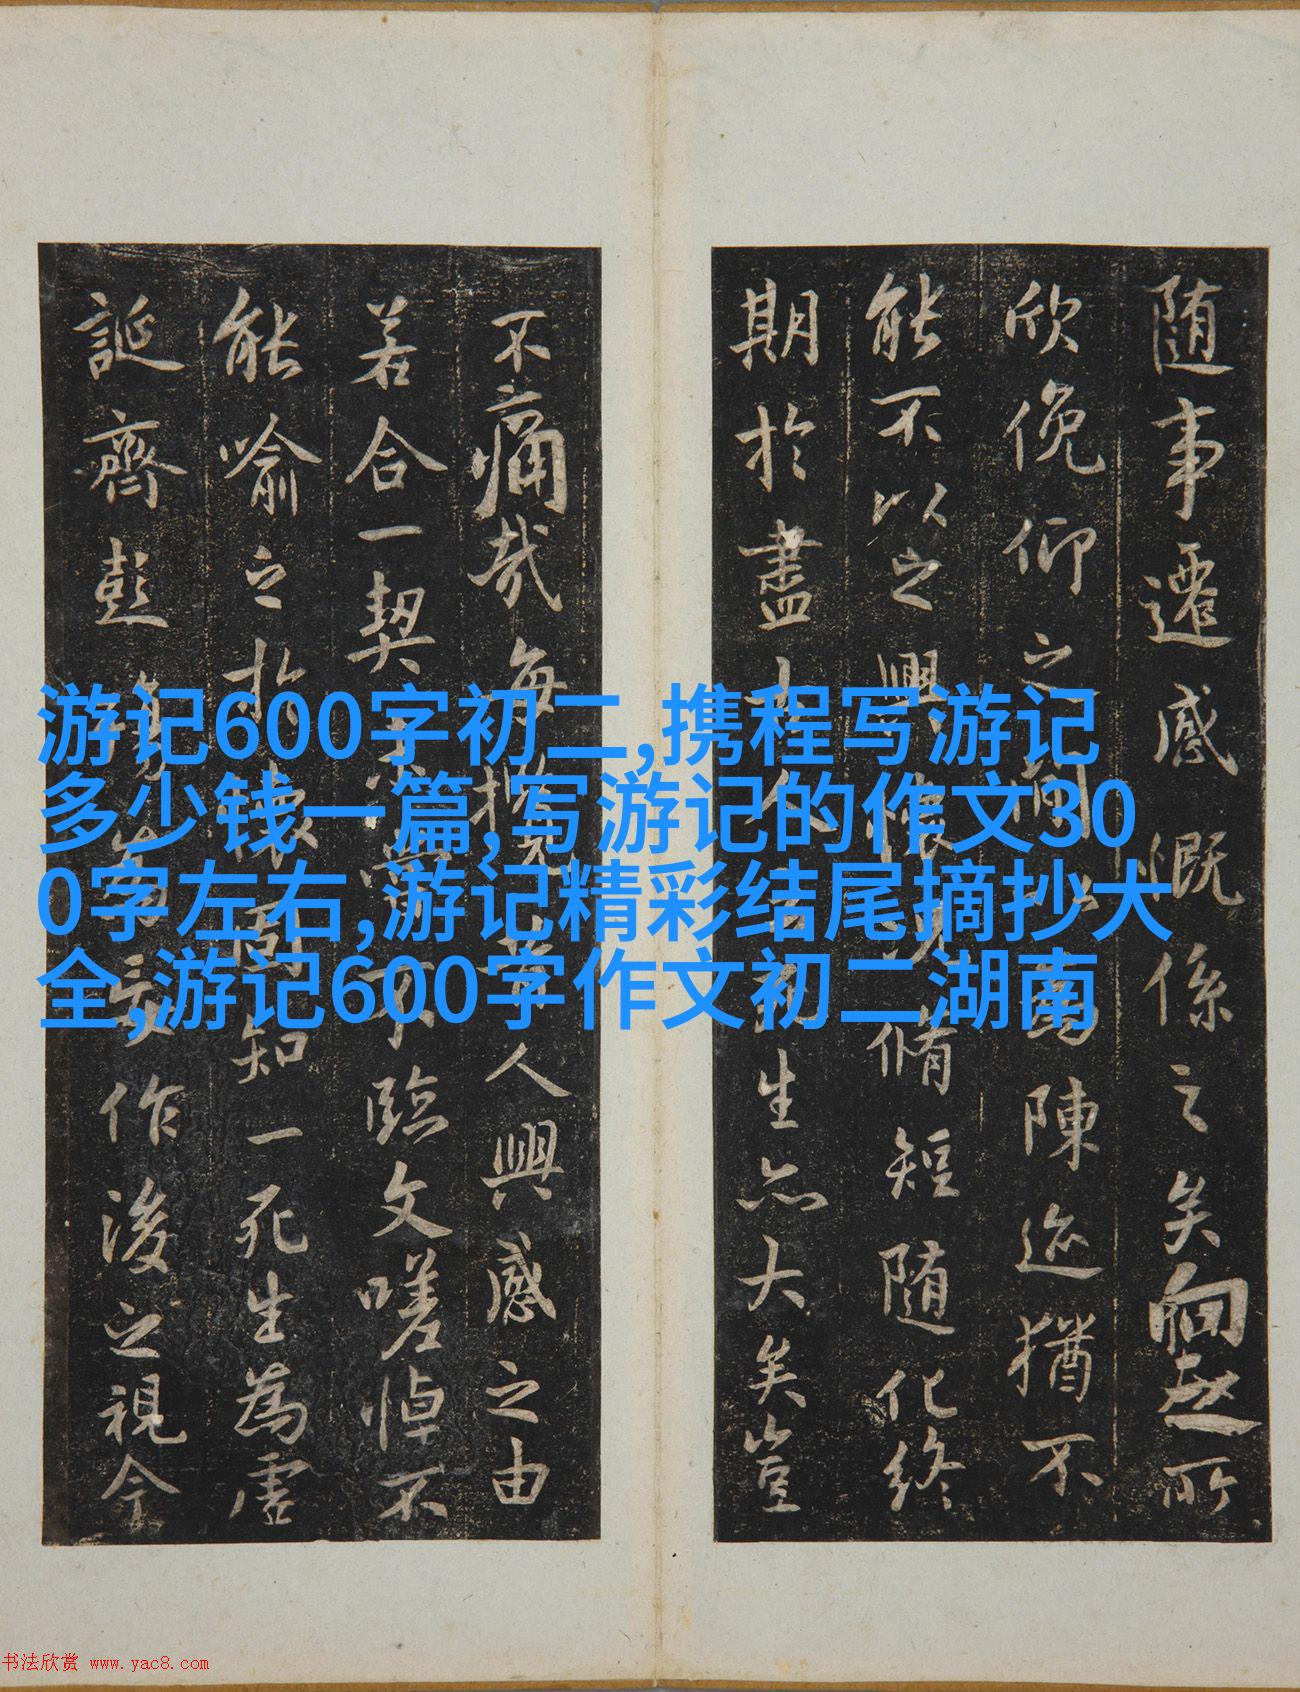 随事遷感慨係之矣向之所
欣俛仰之間以為陳迹猶不
能不以之興懷況脩短隨化終
期於盡古人云死生亦大矣豈
不痛哉每攬昔人興感之由
若合一契未嘗不臨文嗟悼不
能喻之於懷固知一死生為虛
誕齊彭殤為妄作後之視今
游记600字初二,携程写游记
多少钱一篇,写游记的作文30
0字左右,游记精彩结尾摘抄大
全,游记600字作文初二湖南
书法欣赏 www.yac8.com